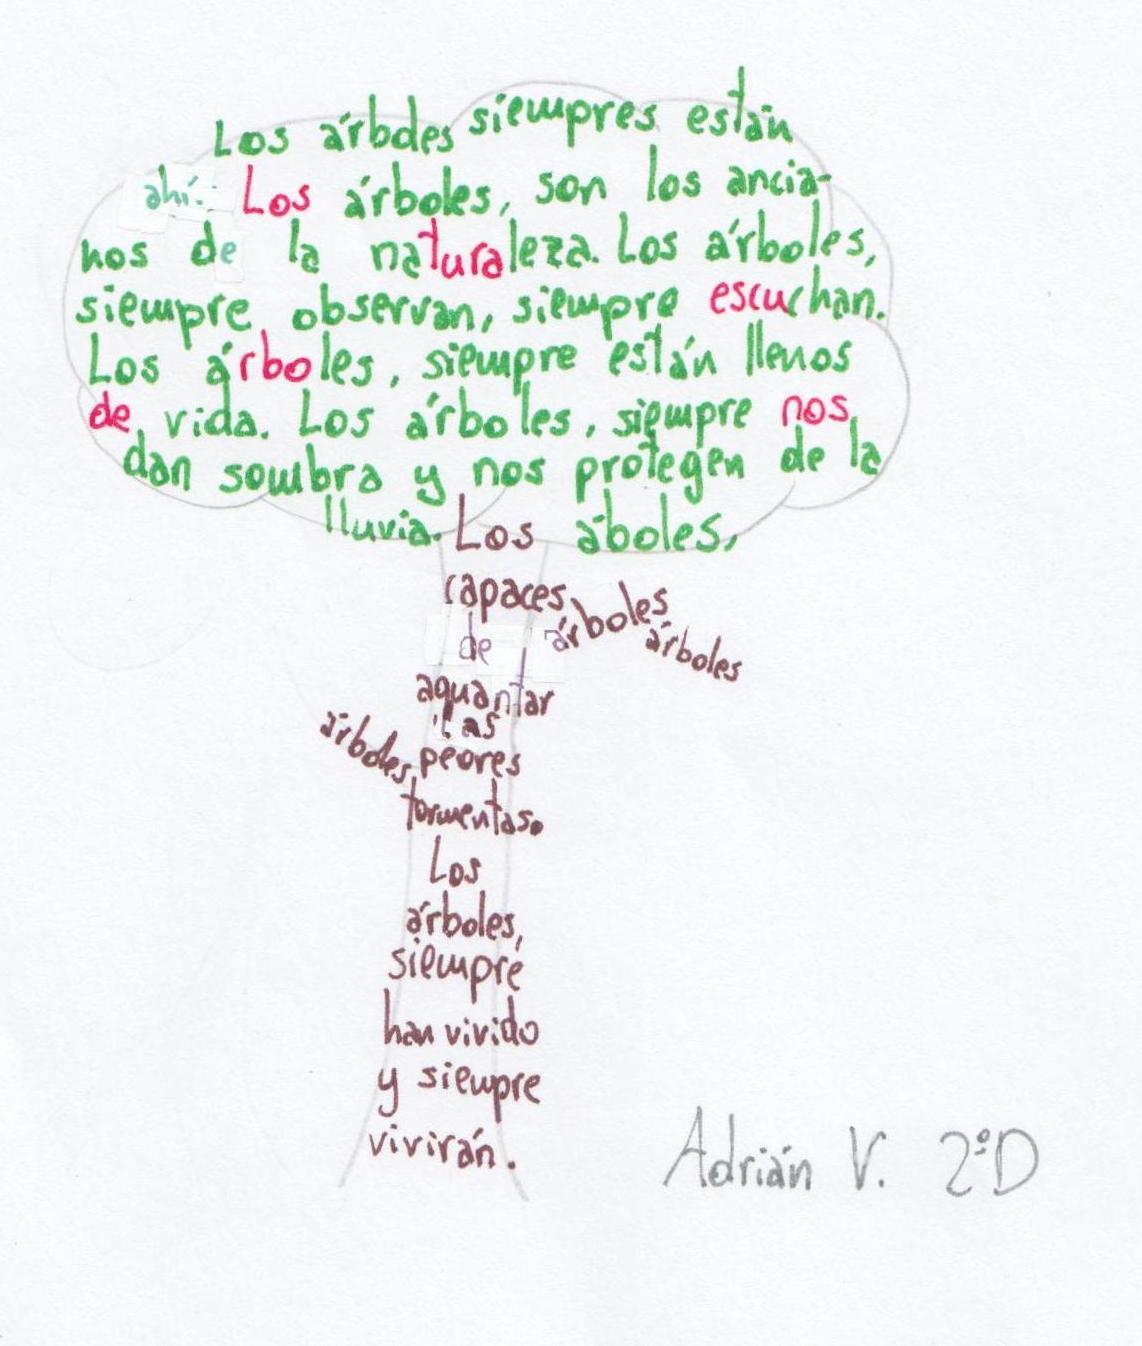 Los árboles siempres están
ahí. Los árboles, son los ancia-
nos de la naturaleza. Los árboles,
siempre observan, siempre escuchan.
Los árboles, siempre están llenos
de vida. Los árboles, siempre nos
dan sombra y nos protegen de la
lluvia. Los áboles,
capaces
árboles
de
árboles
aguantar
las
árboles
peores
tormentas.
Los
árboles,
siempre
han vivido
y siempre
vivirán.
Adrián V. 2ºD